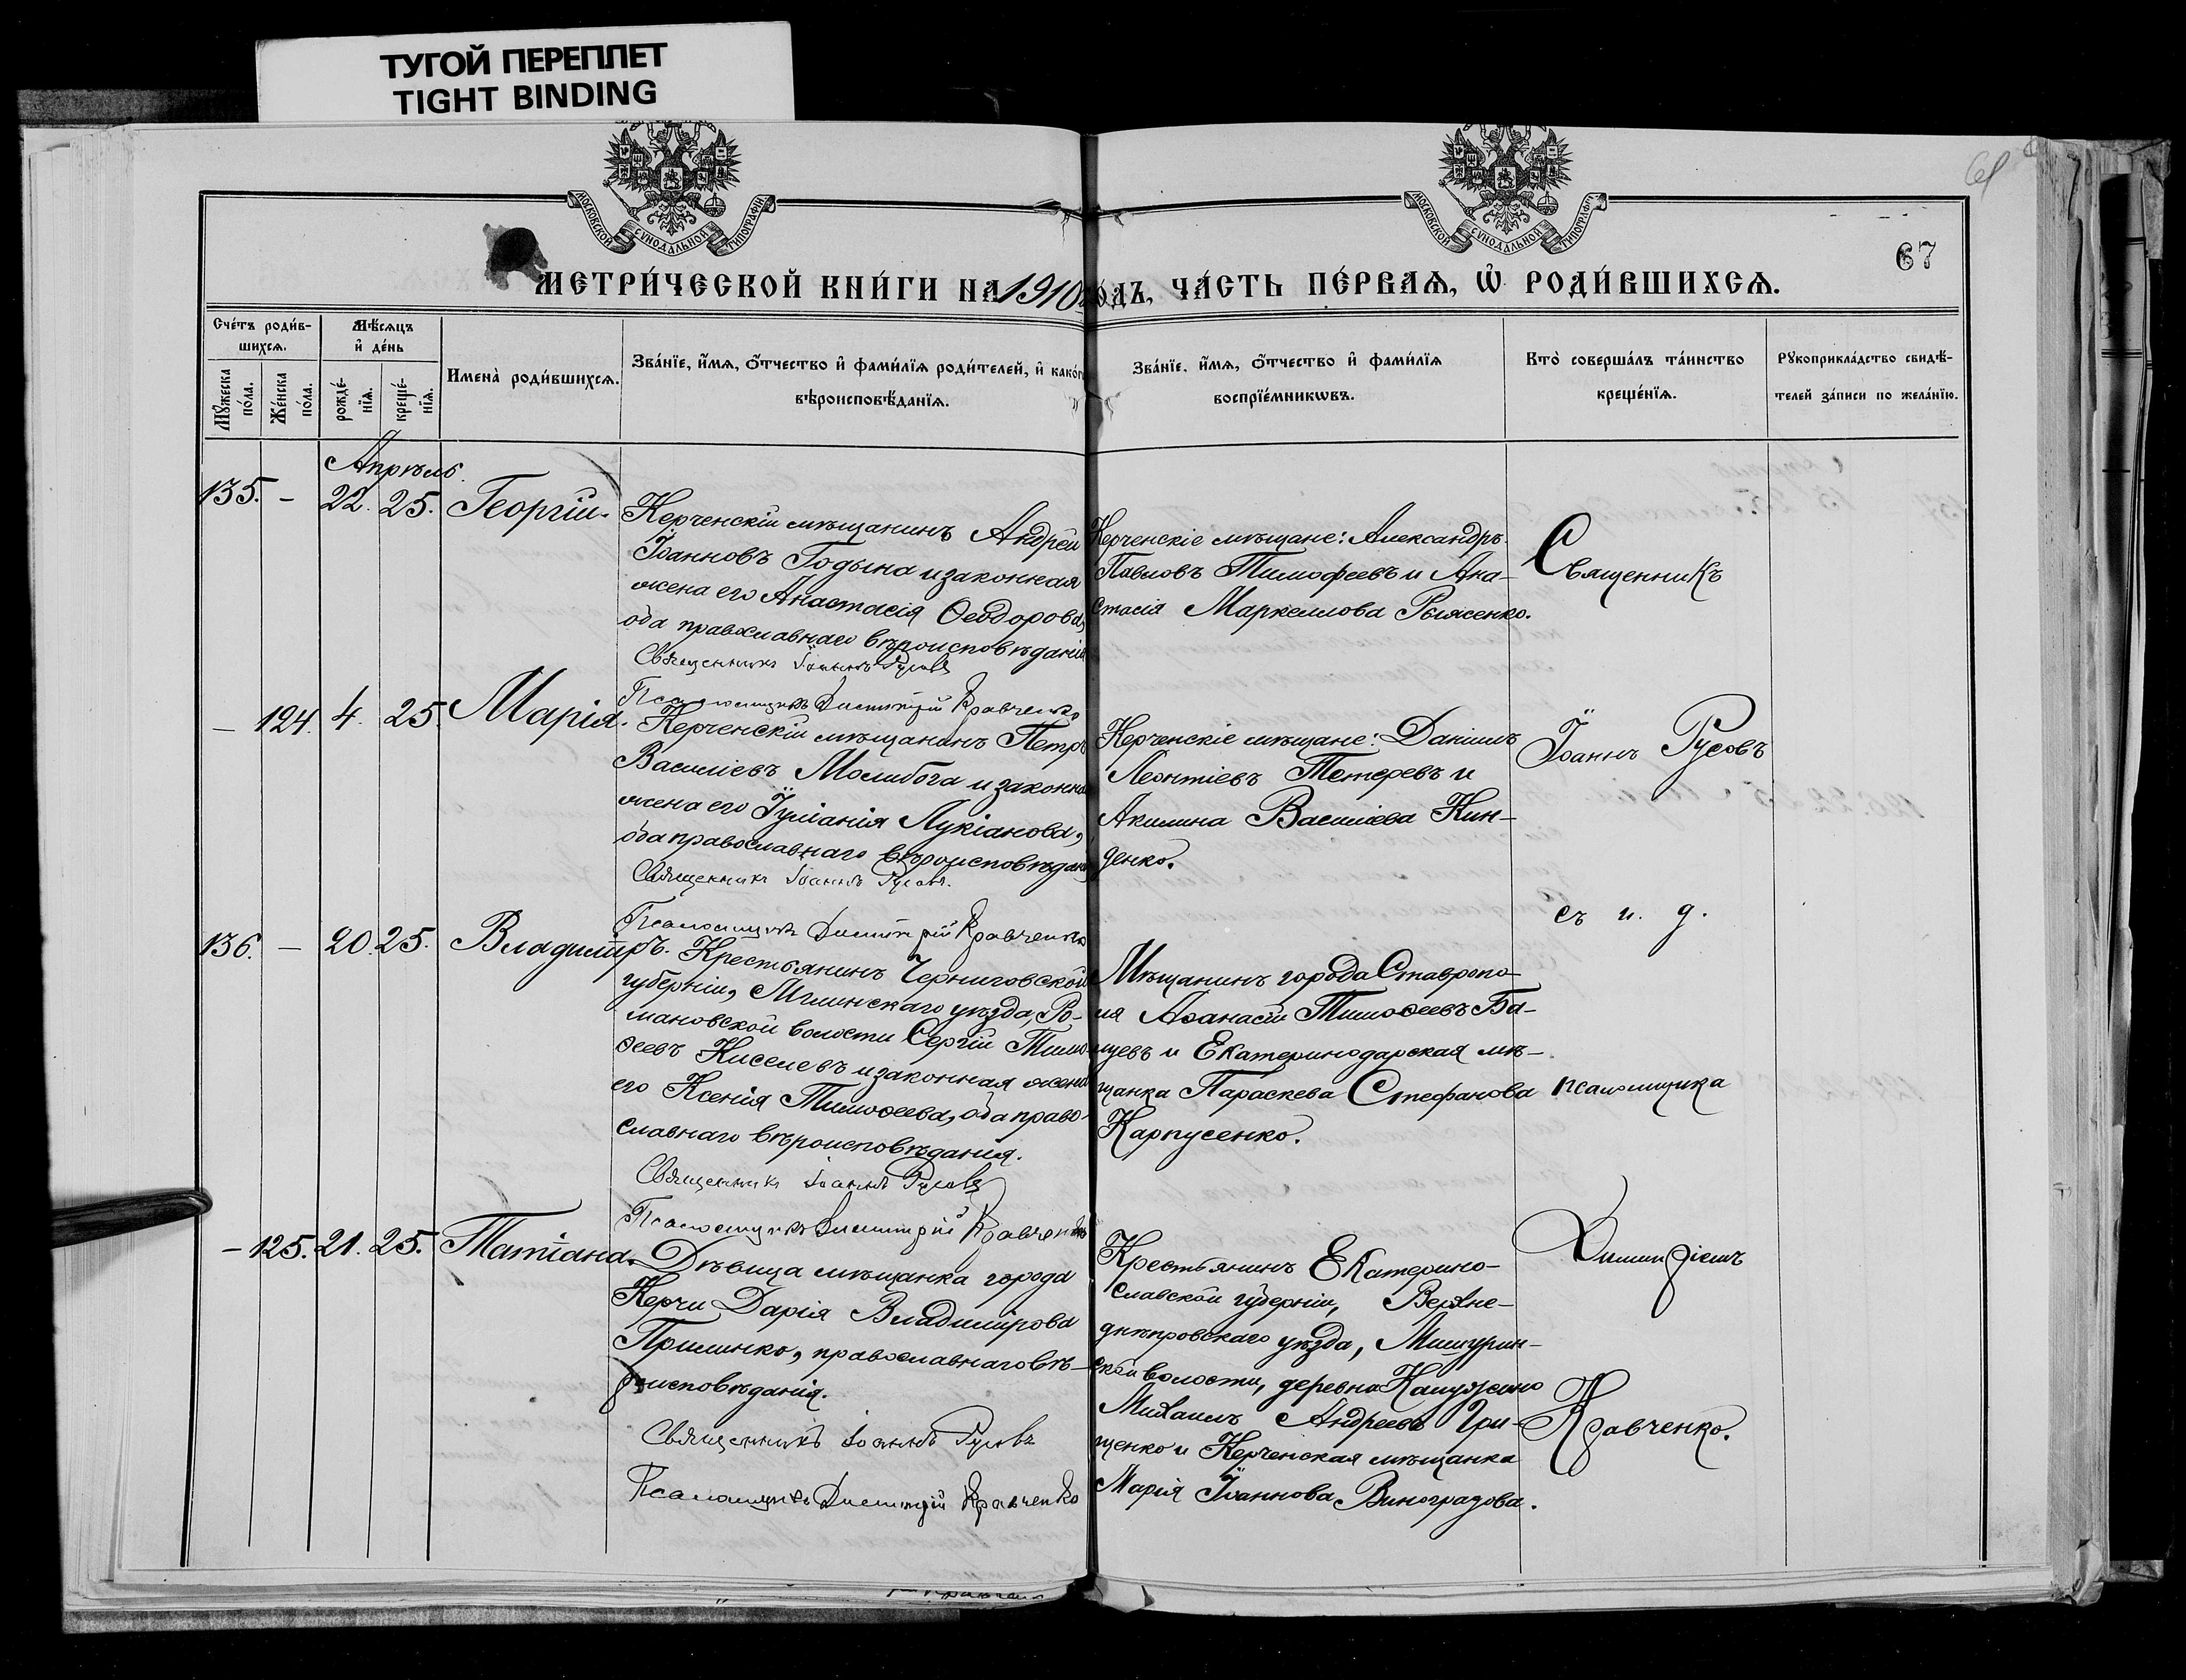 ТУГОЙ ПЕРЕПЛЕТ
TIGHT BINDING
МОСКОВСКОЙ СѴНОДАЛЬНОЙ ТИПОГРАФІИ
МОСКОВСКОЙ СѴНОДАЛЬНОЙ ТИПОГРАФІИ
67
МЕТРИ́ЧЕСКОЙ КНИ́ГИ НА 1910 ГО́ДЪ, ЧА́СТЬ ПЕ́РВАѦ, Ѡ҆ РОДИ́ВШИХСѦ.
Сче́тъ роди́в-
шихсѧ.
Мѣ́сѧцъ
и҆ де́нь
Мꙋ́жеска
по́ла.
Же́нска
по́ла.
рожде́-
нїѧ.
креще́-
нїѧ.
Имена̀ роди́вшихсѧ.
Зва́нїе, и҆́мѧ, ѻ҆́тчество и҆ фами́лїѧ роди́телей, и҆ како́гѡ
вѣроисповѣ́данїѧ.
Зва́нїе, и҆́мѧ, ѻ҆́тчество и҆ фами́лїѧ
воспрїе́мникѡвъ.
Кто̀ соверша́лъ та́инство
креще́нїѧ.
Рꙋкоприкла́дство свидѣ́-
телей за́писи по жела́нїю.
Апрѣль.
135. – 22. 25. Георгій.
Керченскій мѣщанинъ Андрей
Іоанновъ Годына и законная
жена его Анастасія Ѳеодорова,
оба православнаго вѣроисповѣданія
Священникъ Іоаннъ Русовъ
Псаломщикъ Димитрій Кравченко
Керченскіе мѣщане: Александръ
Павловъ Тимофеевъ и Ана-
стасія Маркеллова Рыжсенко.
Священникъ
– 124. 4. 25. Марія.
Керченскій мѣщанинъ Петръ
Василіевъ Молибога и законная
жена его Іуліанія Лукіанова,
оба православнаго вѣроисповѣданія
Священникъ Іоаннъ Русовъ.
Псаломщикъ Димитрій Кравченко
Керченскіе мѣщане: Даніилъ
Леонтіевъ Тетеревъ и
Акилина Василіева Кин-
денко.
Іоаннъ Русовъ
съ и. д.
136. – 20. 25. Владиміръ.
Крестьянинъ Черниговской
губерніи, Мглинскаго уѣзда, Ро-
мановской волости Сергій Тимо-
ѳеевъ Киселевъ и законная жена
его Ксенія Тимоѳеева, оба право-
славнаго вѣроисповѣданія.
Священникъ Іоаннъ Русовъ
Псаломщикъ Димитрій Кравченко
Мѣщанинъ города Ставропо-
ля Аѳанасій Тимоѳеевъ Ба-
щевъ и Екатеринодарская мѣ-
щанка Параскева Стефанова
Карпусенко.
псаломщика
– 125. 21. 25. Татіана.
Дѣвица мѣщанка города
Керчи Дарія Владимірова
Прилинко, православнаго вѣ-
роисповѣданія.
Священникъ Іоаннъ Русовъ
Псаломщикъ Димитрій Кравченко
Крестьянинъ Екатерино-
славской губерніи, Верхне-
днѣпровскаго уѣзда, Мишурин-
ской волости, деревни Калужино
Михаилъ Андреевъ Гри-
щенко и Керченская мѣщанка
Марія Іоаннова Виноградова.
Димитріемъ
Кравченко.